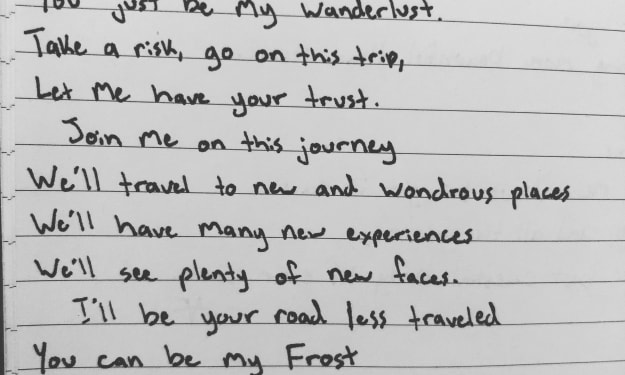 You just be my wanderlust.
Take a risk, go on this trip,
Let me have your trust.
Join me on this journey
We'll travel to new and wondrous places
We'll have many new experiences
We'll see plenty of new faces.
I'll be your road less traveled
You can be my Frost